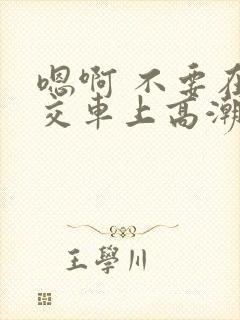 嗯啊 不要在
交車上高潮
王學川